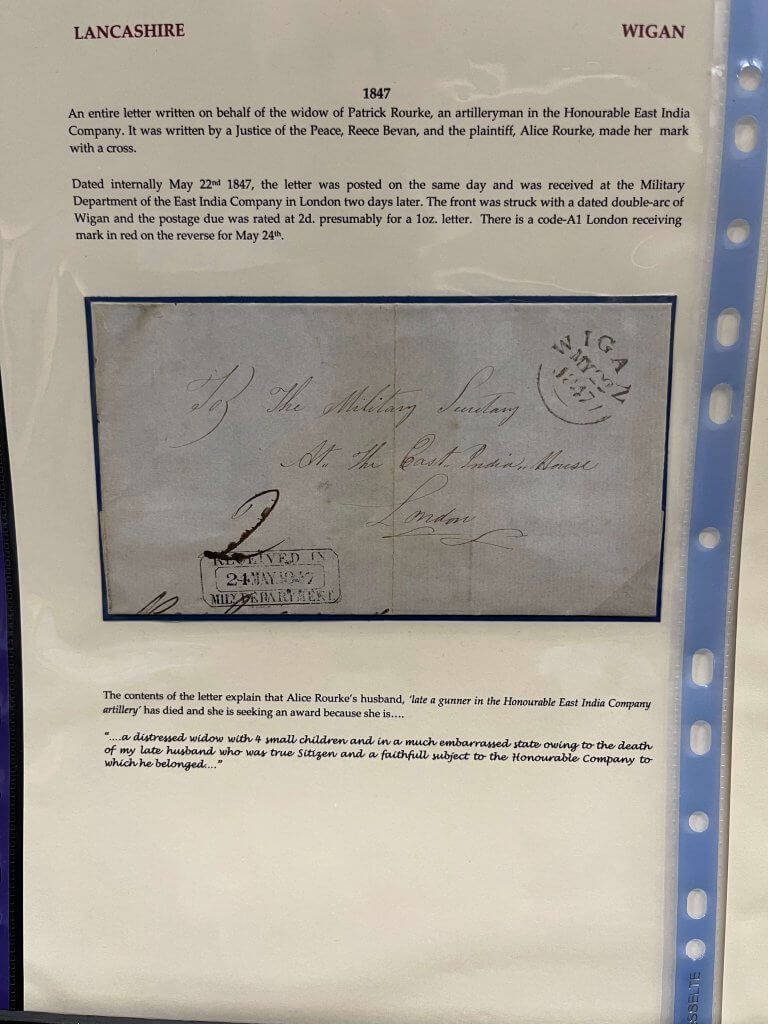 LANCASHIRE WIGAN
1847
An entire letter written on behalf of the widow of Patrick Rourke, an artilleryman in the Honourable East India
Company. It was written by a Justice of the Peace, Reece Bevan, and the plaintiff, Alice Rourke, made her mark
with a cross.
Dated internally May 22nd 1847, the letter was posted on the same day and was received at the Military
Department of the East India Company in London two days later. The front was struck with a dated double-arc of
Wigan and the postage due was rated at 2d. presumably for a 1oz. letter. There is a code-A1 London receiving
mark in red on the reverse for May 24th.
WIGAN
MY 22
1847
To The Military Secretary
At,, The East,, India,, House
London
2
RECEIVED IN
24 MAY 1847
MILY DEPARTMENT
The contents of the letter explain that Alice Rourke's husband, 'late a gunner in the Honourable East India Company
artillery' has died and she is seeking an award because she is….
"….a distressed widow with 4 small children and in a much embarrassed state owing to the death
of my late husband who was true Sitizen and a faithfull subject to the Honourable Company to
which he belonged…."
SSELTE